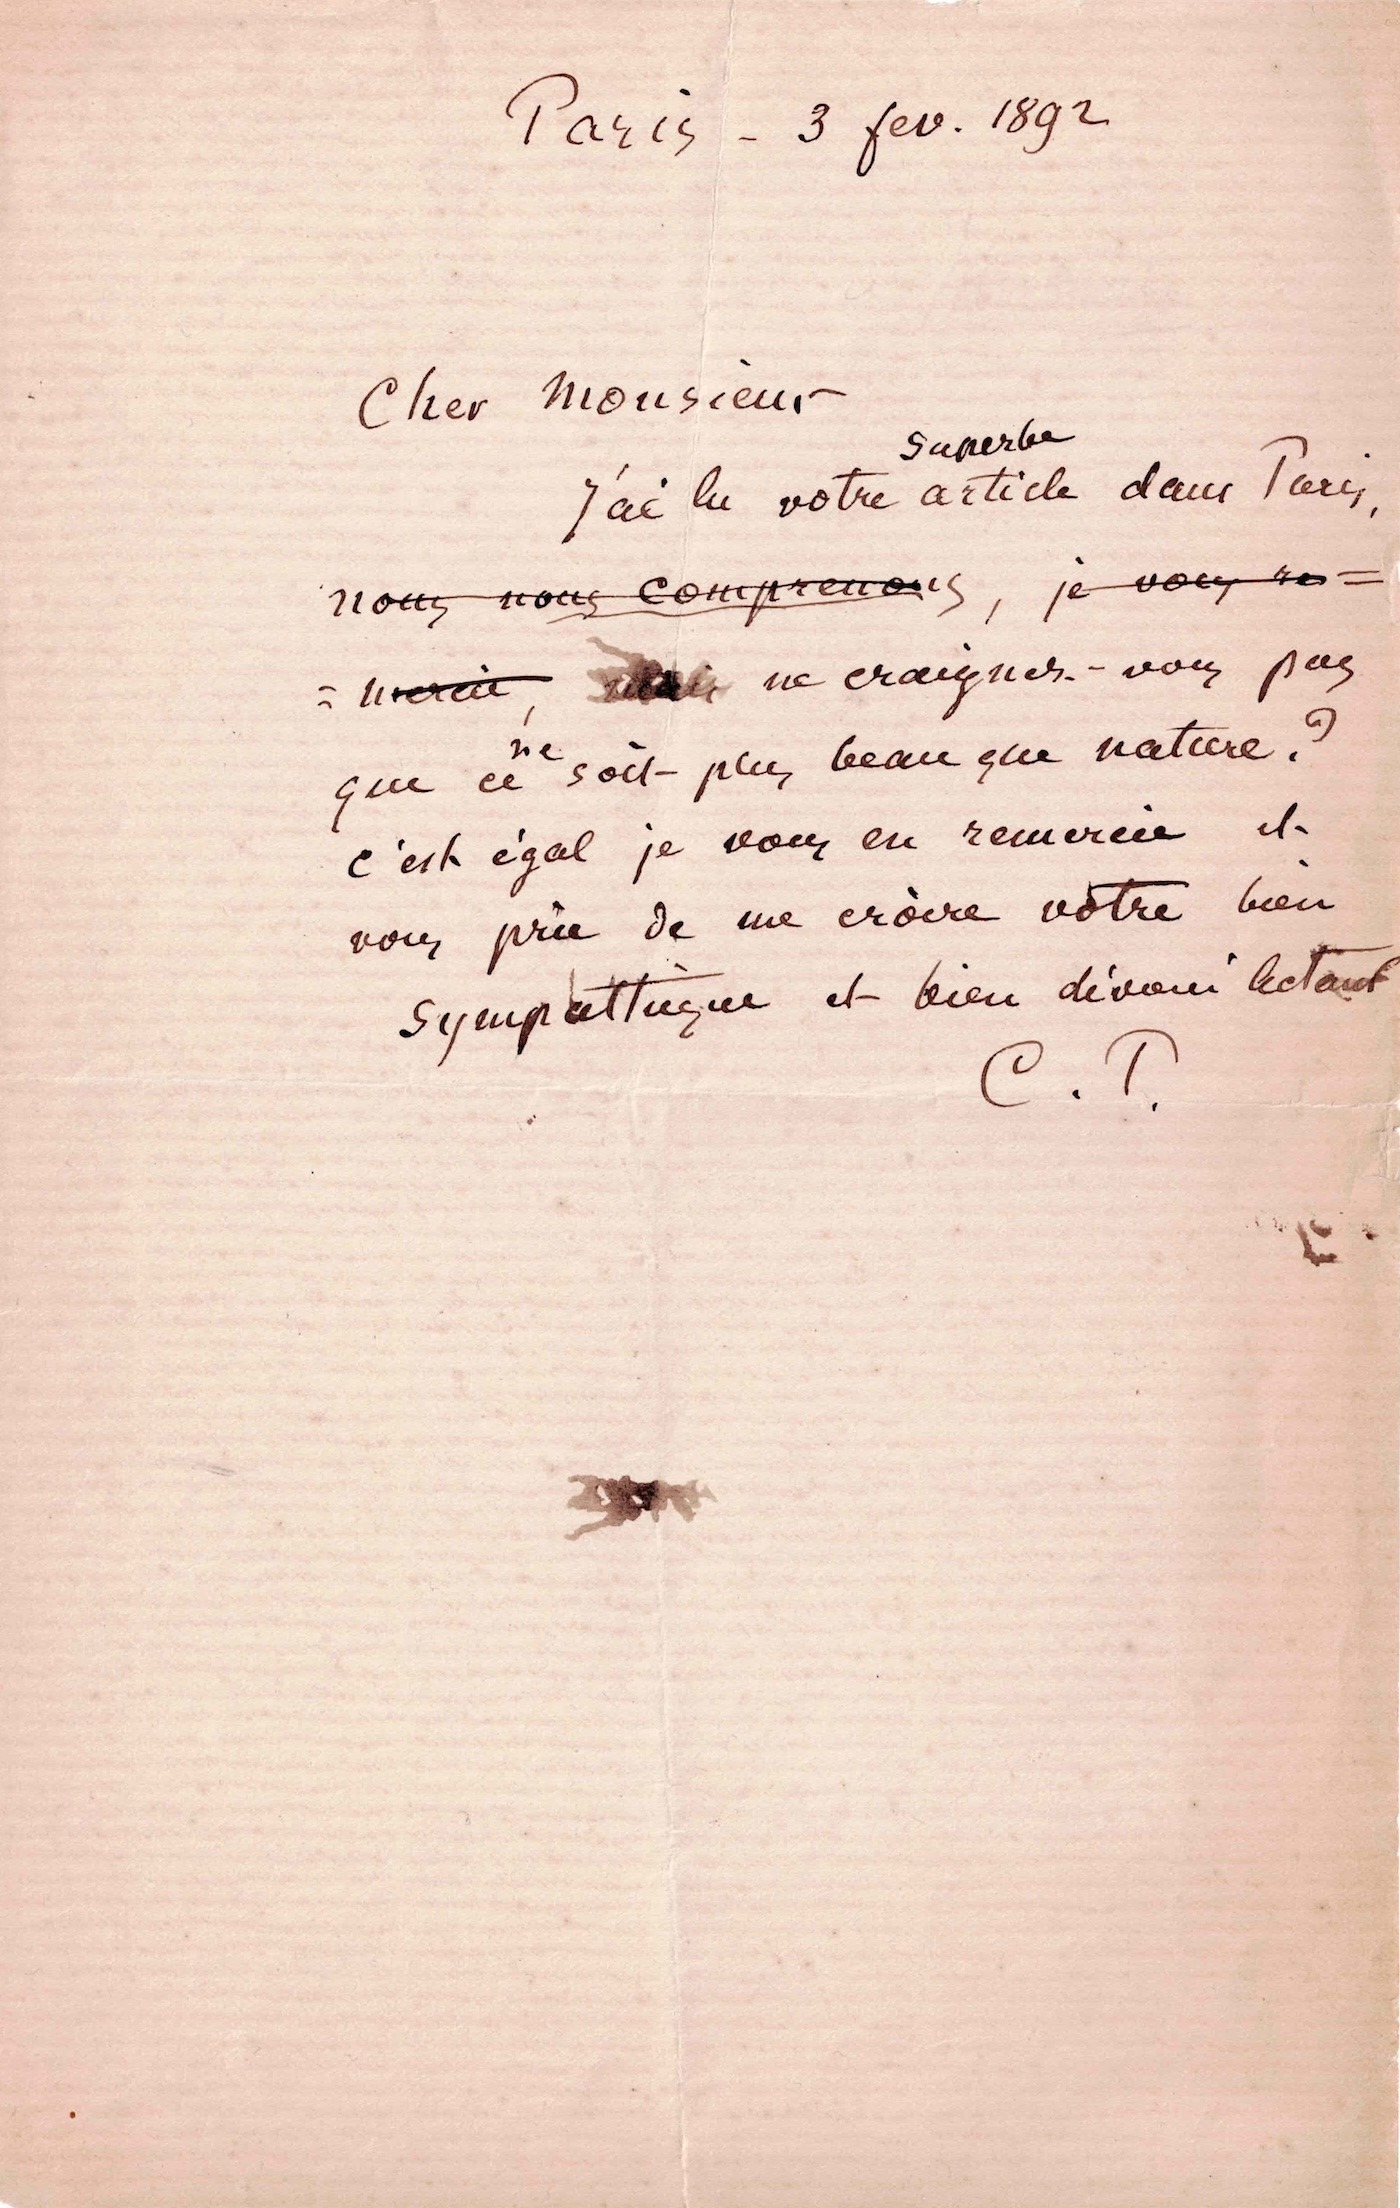 Paris - 3 fev. 1892
Cher Monsieur
superbe
J'ai lu votre article dans Paris,
nous nous comprenons, je vous re=
=mercie, mais ne craignez-vous pas
ne
que ce soit plus beau que nature?
c'est égal je vous en remercie et
vous prie de me croire votre bien
sympattique et bien dévoué
C. P.